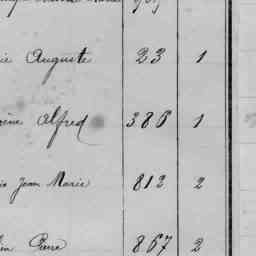 Auguste 23 1
Alfred 386 1
Jean Marie 812 2
Pierre 867 2